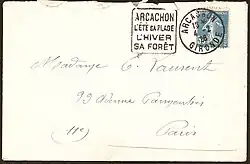 ARCACHON
L'ÉTÉ SA PLAGE
L'HIVER
SA FORÊT
ARCACHON
GIRONDE
Madame E. Laurent
99 Avenue Parmentier
(11e)
Paris